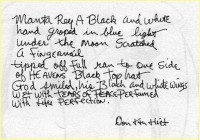 Manta Ray A Black and white
hand groped in blue light
under the moon Scratched
A Fingernail
tipped off Full Jean to one side
of HEAVENS Black Top hat
God smiled, his Black and white wings
wet with tears of tears Perfumed
with Perfection.
Don Van Vliet